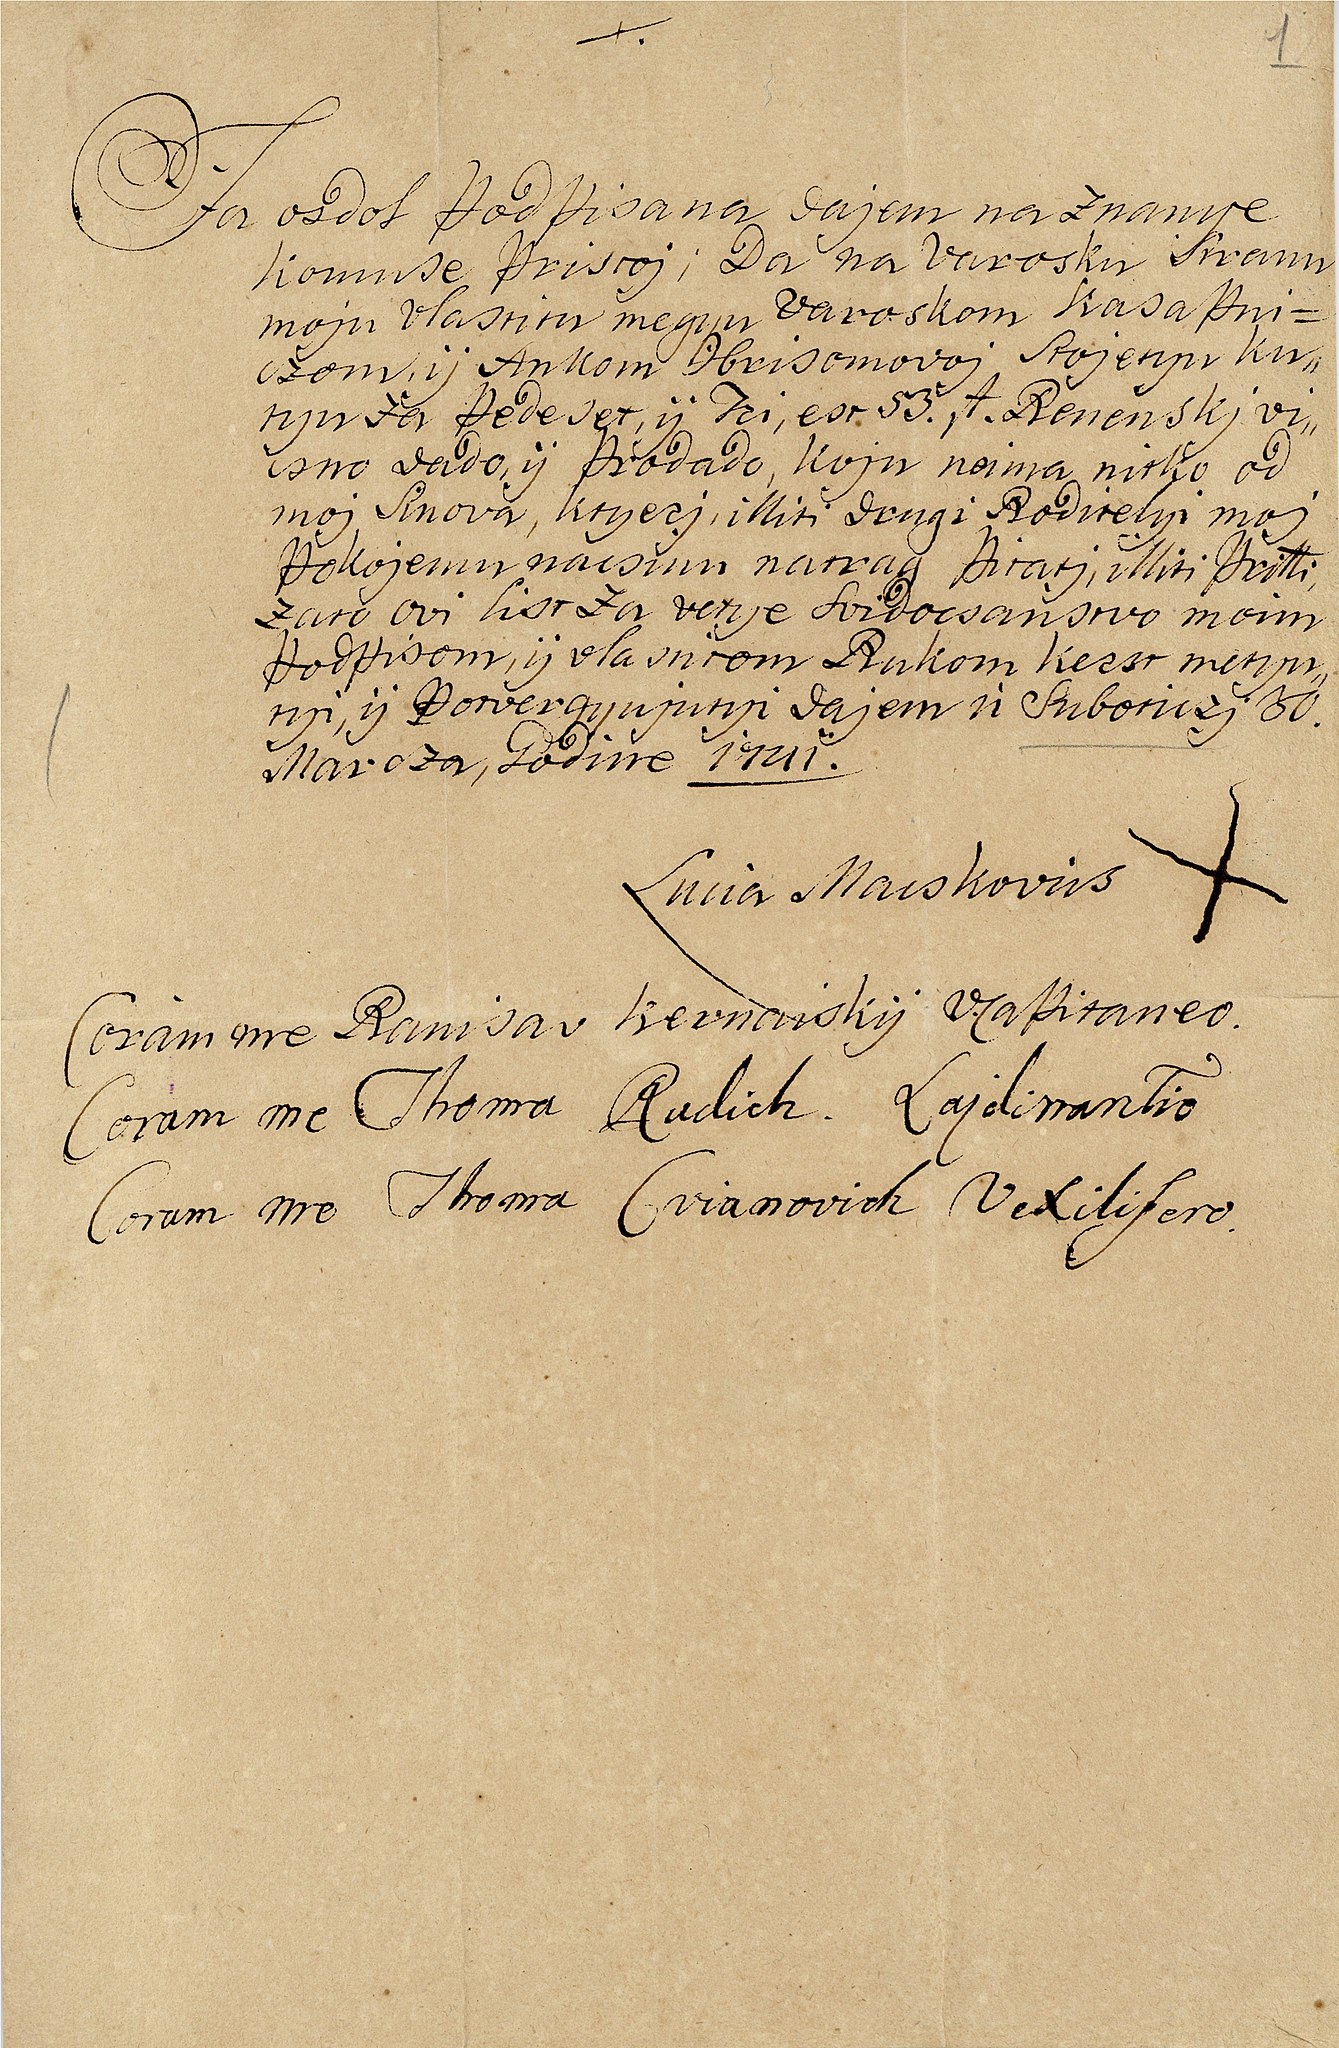 1
Ja ozdol podpisana dajem na znanye
komuse pristoj; Da na Varosku Stranu
moju vlastitu megyu Varoskom Kasapni=
czom, ij Ankom Ibrisomovoj Stojetyu ku„
tyu za pedeset, ij Tri, est 53. ft. Renenskj vi„
csno dado, ij prodado, koju neima nitko od
moj Sinova, ktyerj, illiti drugi Roditelyi moj
pokojemu nacsinu natrag pitatj, illiti pritti,
zato ovi list za vetye Svidocsanstvo moim
podpisom, ij vlastitom Rukom kerst metyu„
tyi, ij potvergyujutyi dajem ù Suboticzj 30.
Marcza, Godine 1741.
Lucia Macskovics
Coram me Ranisav Kernaiskij V. Capitaneo.
Coram me Thoma Rudich. Lajdinantio
Coram me Thoma Cvianovich Vexilifero.